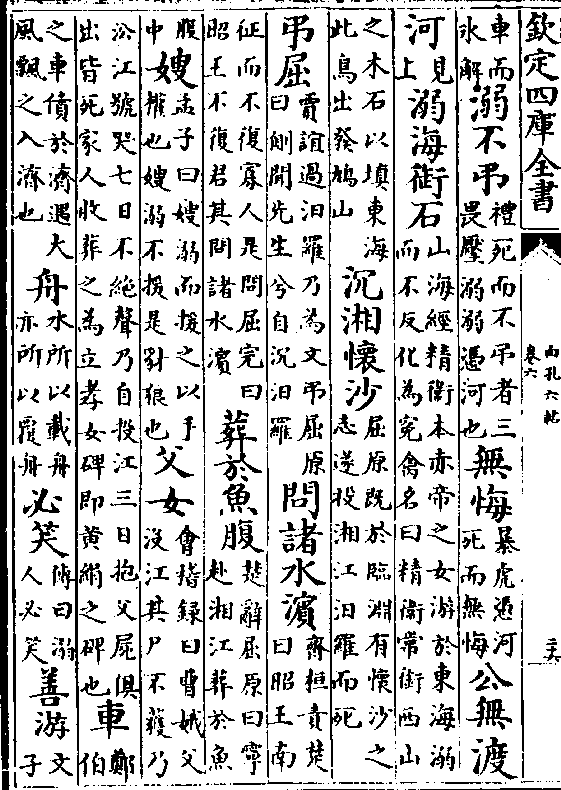 欽定四庫全書
白孔六帖
卷六
二十六
車而氷解溺不弔禮死而不弔者三畏壓溺溺憑河也無悔暴虎憑河死而無悔公無渡
河見上溺海銜石山海經精衛本赤帝之女游於東海溺而不反化為寃禽名曰精衛常銜西山
之木石以填東海此鳥出發鳩山沉湘懷沙屈原既於臨淵有懷沙之志遂投湘江汨羅而死
弔屈賈誼過汨羅乃為文弔屈原曰側聞先生兮自沉汨羅問諸水濱齊桓責楚曰昭王南
征而不復寡人是問屈完曰昭王不復君其問諸水濱葬於魚腹楚辭屈原曰寧赴湘江葬於魚
腹中嫂孟子曰嫂溺而援之以手權也嫂溺不援是豺狼也父女會稽録曰曹娥父沒江其尸不獲乃
沿江號哭七日不絶聲乃自投江三日抱父屍俱出皆死家人收葬之為立孝女碑即黄絹之碑也車鄭伯
之車僨於濟遇大風飄之入濟也舟水所以載舟亦所以覆舟必笑傳曰溺人必笑善游文子